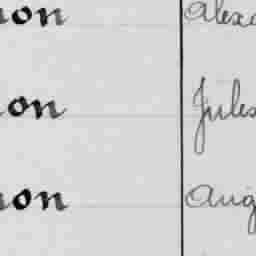 non Alexa
non Jules
non Aug